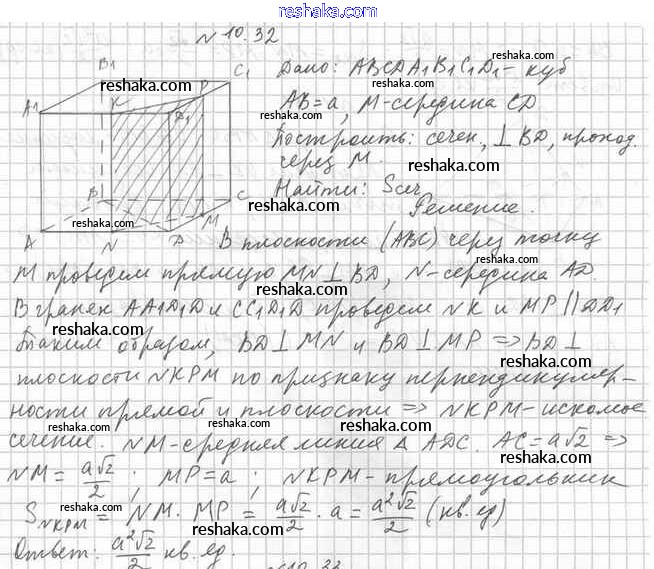 reshaka.com
N 10.32
B1 C1 Дано: ABCDA1B1C1D1 – куб
reshaka.com reshaka.com
A1 K P D1 AB=a, M-середина CD
Построить: сечен, ⊥ BD, проход.
reshaka.com
через M. reshaka.com
B C Найти: Sсеч
reshaka.com reshaka.com
A N D M Решение.
reshaka.com
В плоскости (ABC) через точку
M проведем прямую MN⊥BD, N-середина AD.
reshaka.com reshaka.com
В гранях AA1D1D и CC1D1D проведем NK и MP||DD1
reshaka.com
Таким образом, BD⊥MN и BD⊥MP ⇒ BD⊥
reshaka.com
плоскости NKPM по признаку перпендикуляр-
reshaka.com
ности прямой и плоскости ⇒ NKPM-искомое
reshaka.com
сечение. NM-средняя линия Δ ADC. AC=a√2 ⇒
reshaka.com
NM= a√2/2 ; MP=a ; NKPM-прямоугольник
reshaka.com
SNKPM = NM·MP= a√2/2 · a = a²√2/2 (кв.ед)
reshaka.com
Ответ: a²√2/2 кв.ед.
reshaka.com
N10.33